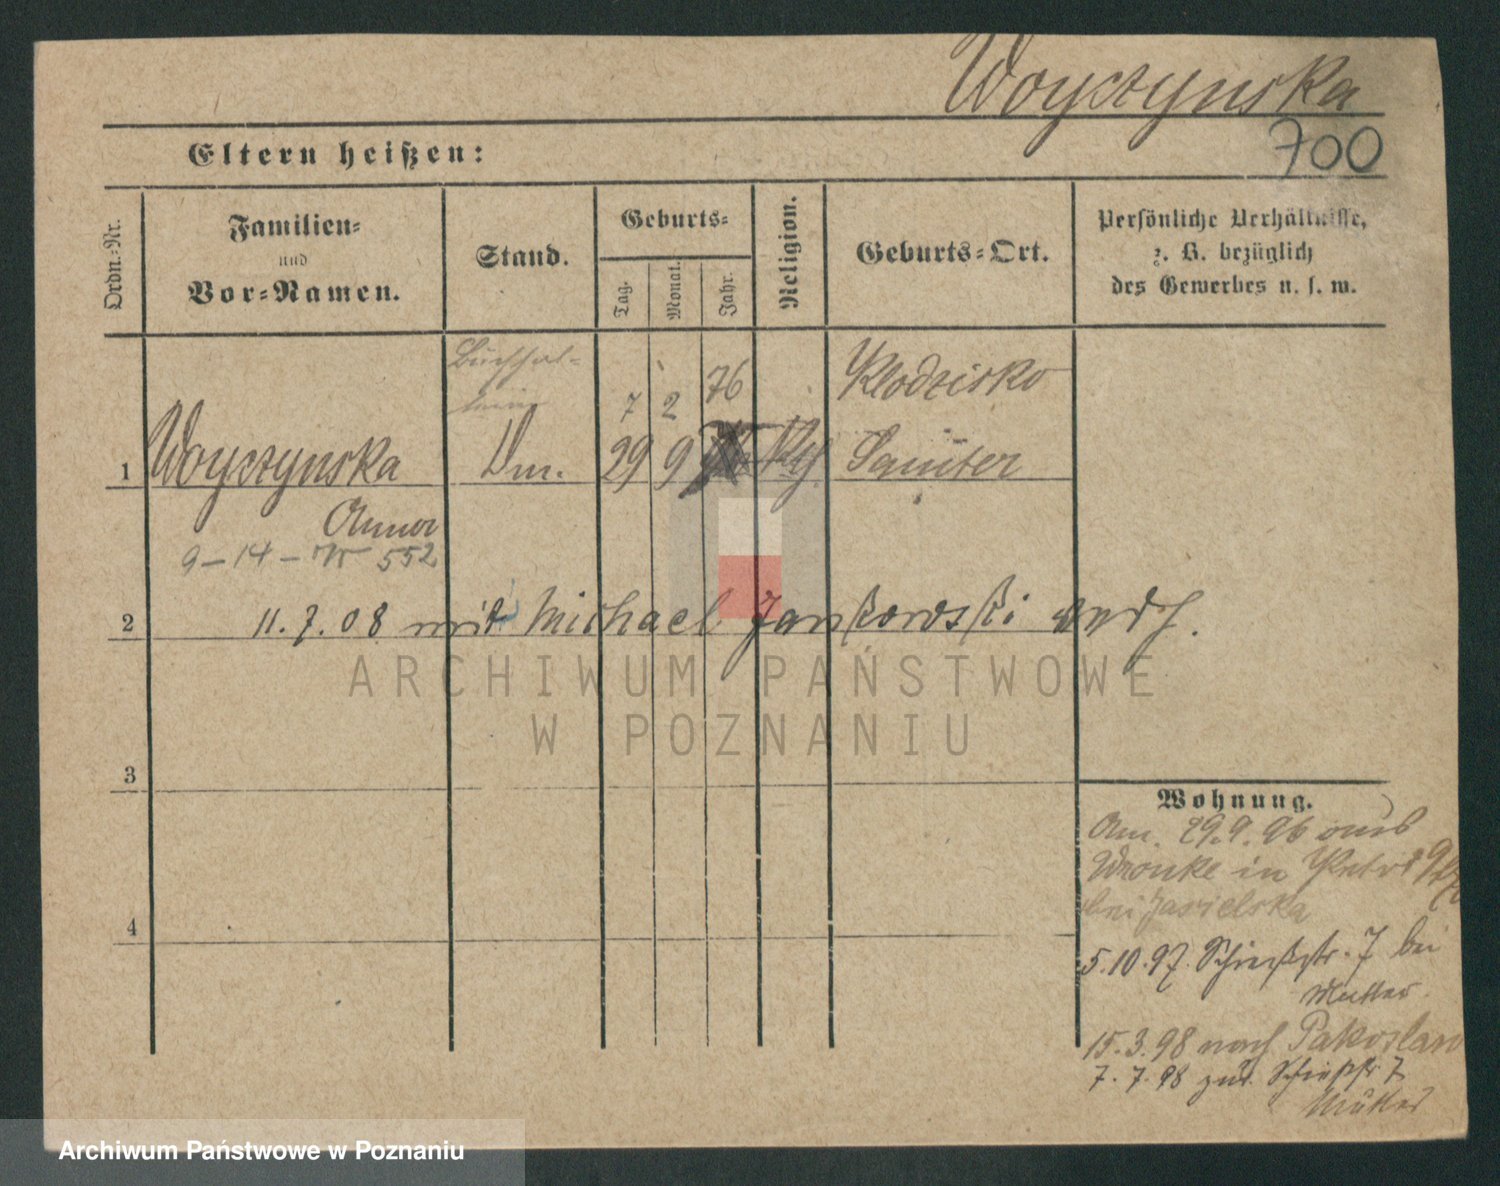 Woyczynska
700
Eltern heißen:
Ordn.-Nr.
Familien-
und
Vor-Namen.
Stand.
Geburts-
Tag.
Monat.
Jahr.
Religion.
Geburts-Ort.
Persönliche Verhältnisse,
z. B. bezüglich
des Gewerbes u. s. w.
Buchhal-
terin
7 2 76 Klodzisko
1 Woyczynska 29 9 Samter
Anna
9-14-W 552
2 11.7.08 mit Michael Jankowski verh.
3
4
Wohnung.
Am. 29.9.96 aus
Wronke in
bei Jasielska
5.10.97. Schießstr. 7 bei
Mutter.
15.3.98 nach Pakoslaw
7.7.98 zur. Schießstr 7
Mutter
ARCHIWUM PAŃSTWOWE
W POZNANIU
Archiwum Państwowe w Poznaniu